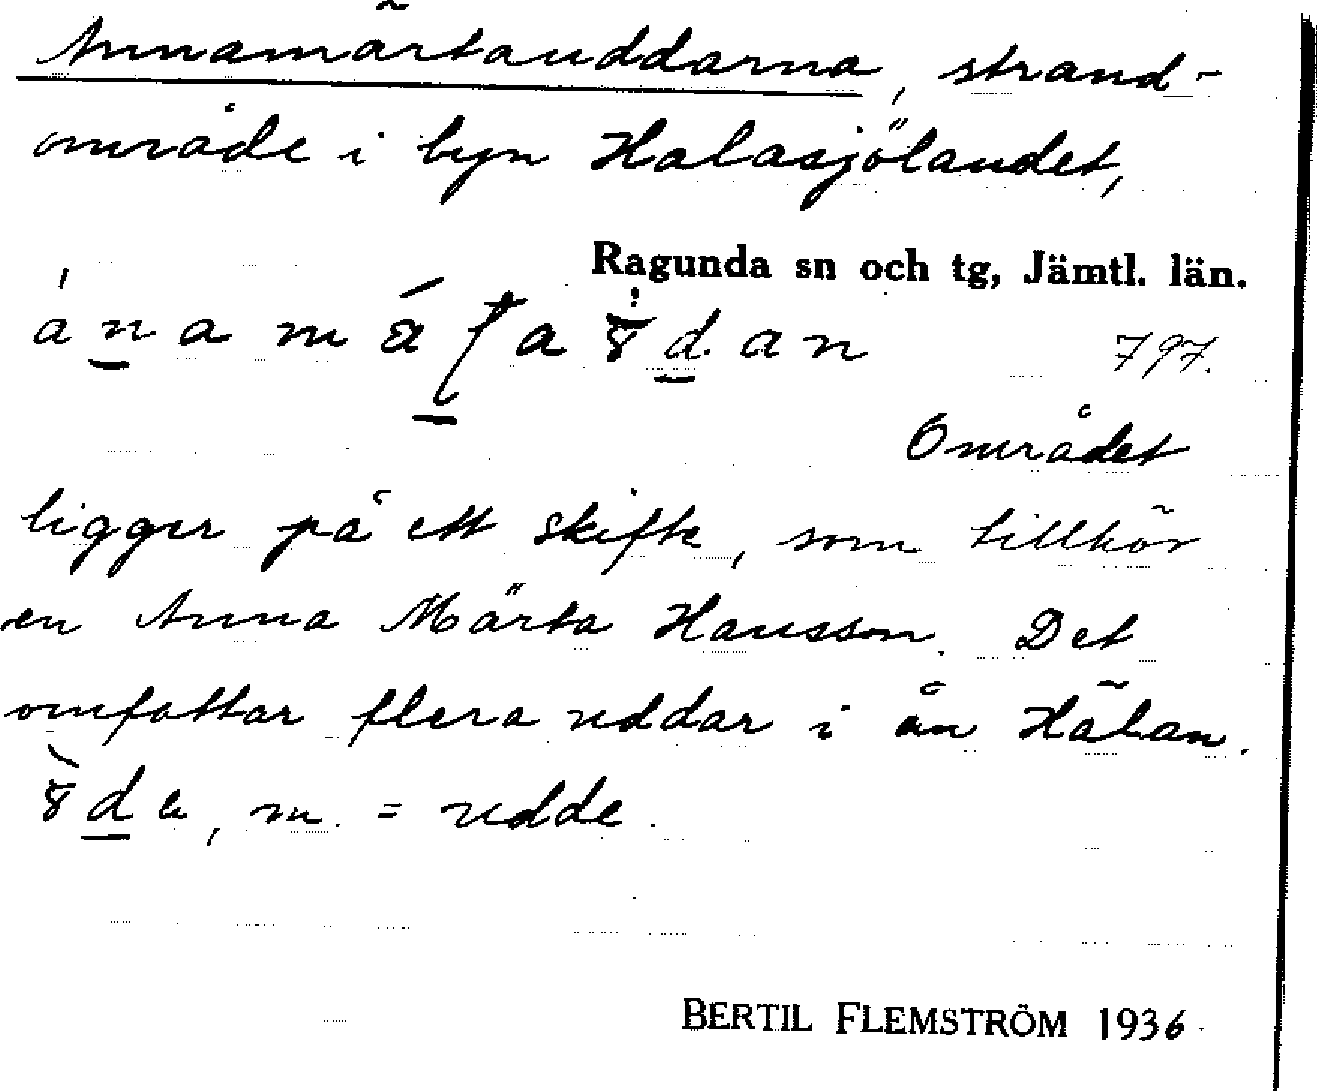 Annamärtauddarna, strand-
område i byn Halasjölandet,
Ragunda sn och tg, Jämtl. län.
797.
Området
ligger på ett skifte, som tillhör
en Anna Märta Hansson. Det
omfattar flera uddar i ån Hälan.
m. = udde.
BERTIL FLEMSTRÖM 1936